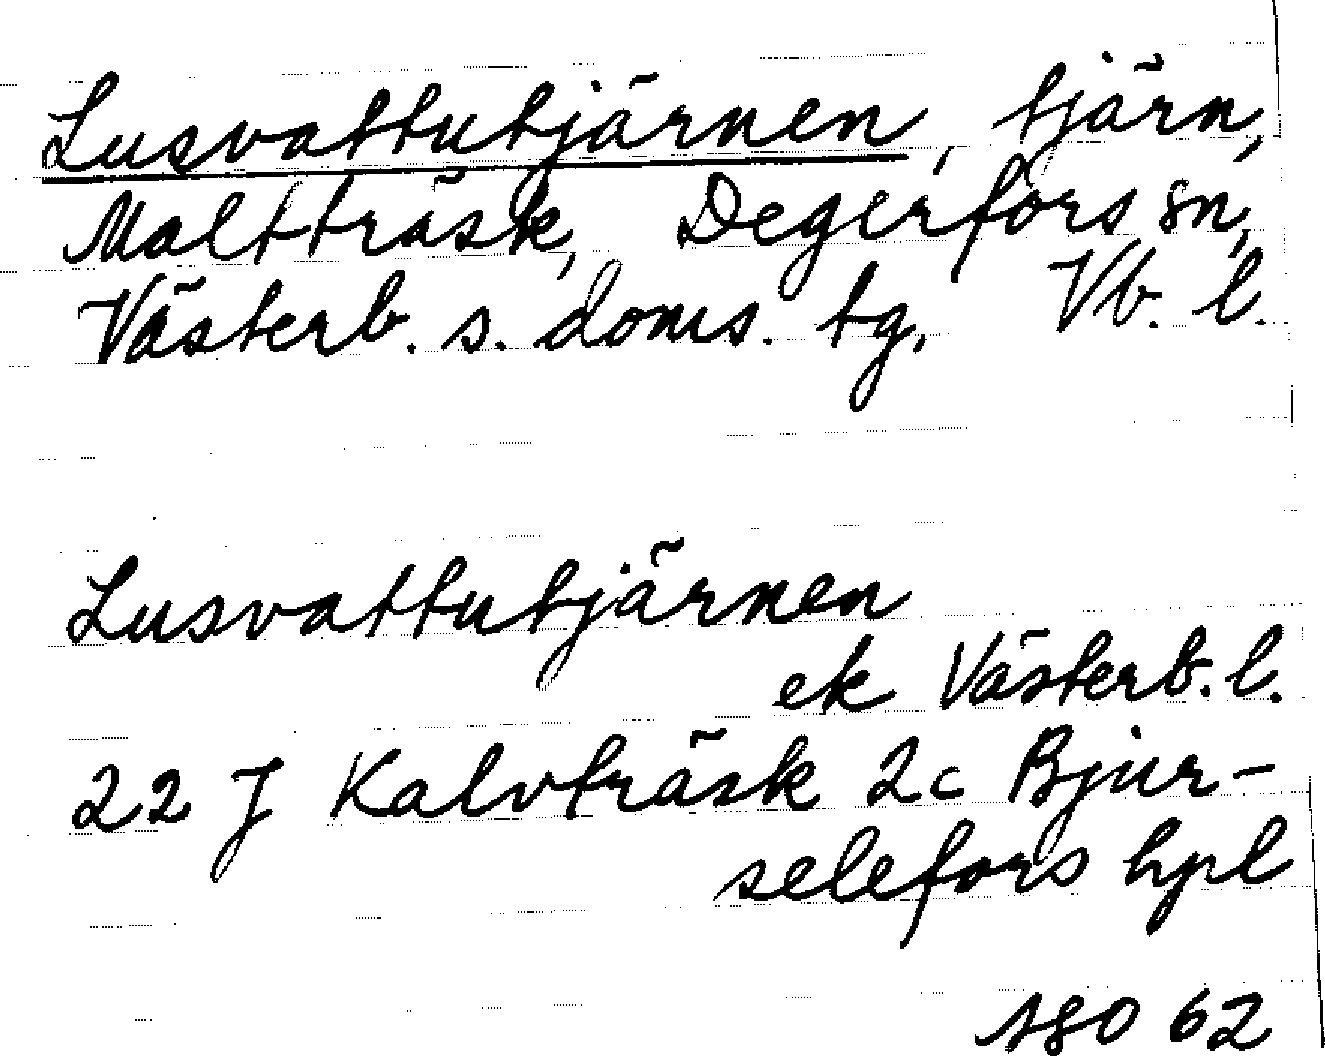 Lusvattutjärnen, tjärn,
Maltträsk, Degerfors sn,
Västerb. s. doms. tg, Vb. l.
Lusvattutjärnen
ek Västerb. l.
22 J Kalvträsk 2c Bjur-
selefors hpl
ASO 62